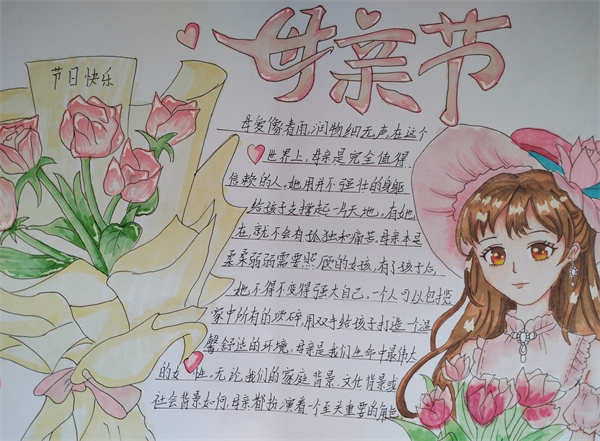 母亲节
节日快乐
母爱像春雨,润物细无声,在这个
世界上,母亲是完全值得
信赖的人。她用并不强壮的身躯
给孩子支撑起一片天地,有她
在,就不会有孤独和痛苦,母亲本是
柔柔弱弱需要照顾的女孩,有了孩子后,
她不得不变得强大自己,一个人可以包揽
家中所有的琐碎,用双手给孩子打造一个温
馨舒适的环境。母亲是我们生命中最伟大
的女性,无论我们的家庭背景,文化背景或
社会背景如何,母亲都扮演着一个至关重要的角色